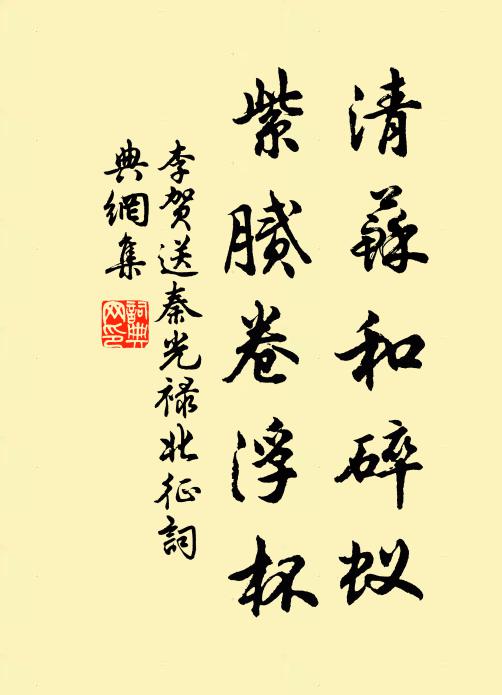 清蘇和碎蚁
紫膩卷浮杯
李贺送秦光禄北征詞
典網集
詞典網印